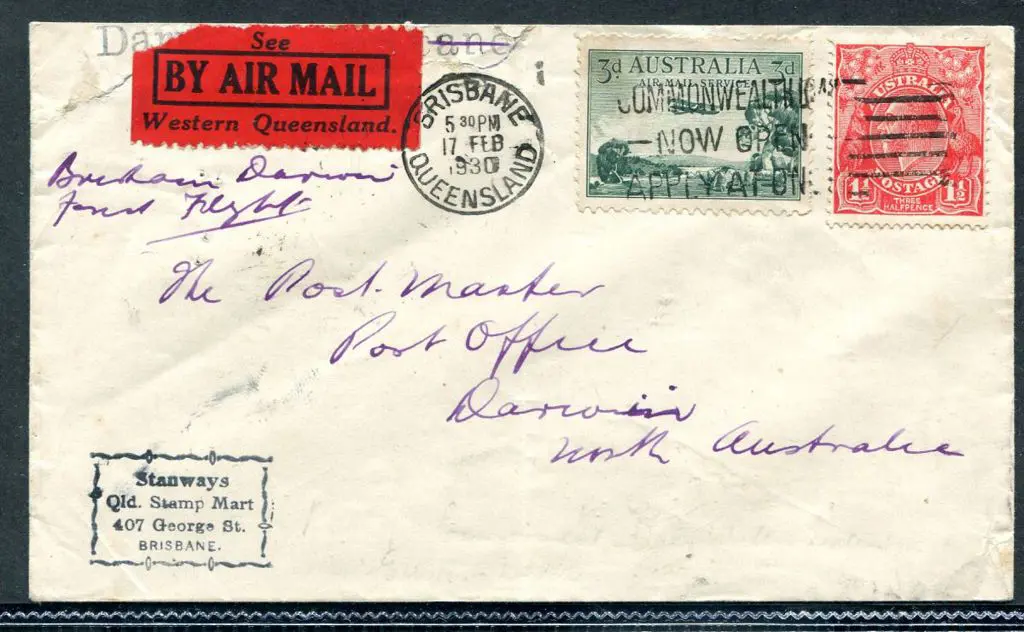 Dar
ane
See
BY AIR MAIL
Western Queensland.
BRISBANE
5 30 PM
17 FEB
1930
QUEENSLAND
3d AUSTRALIA 3d
AIR MAIL SERVICE
COMMONWEALTH LOAN
NOW OPEN
APPLY AT ON
AUSTRALIA
1½ POSTAGE 1½
THREE
HALFPENCE
Brisbane Darwin
First Flight
The Post. Master
Post Office
Darwin
North Australia
Stanways
Qld. Stamp Mart
407 George St.
BRISBANE.